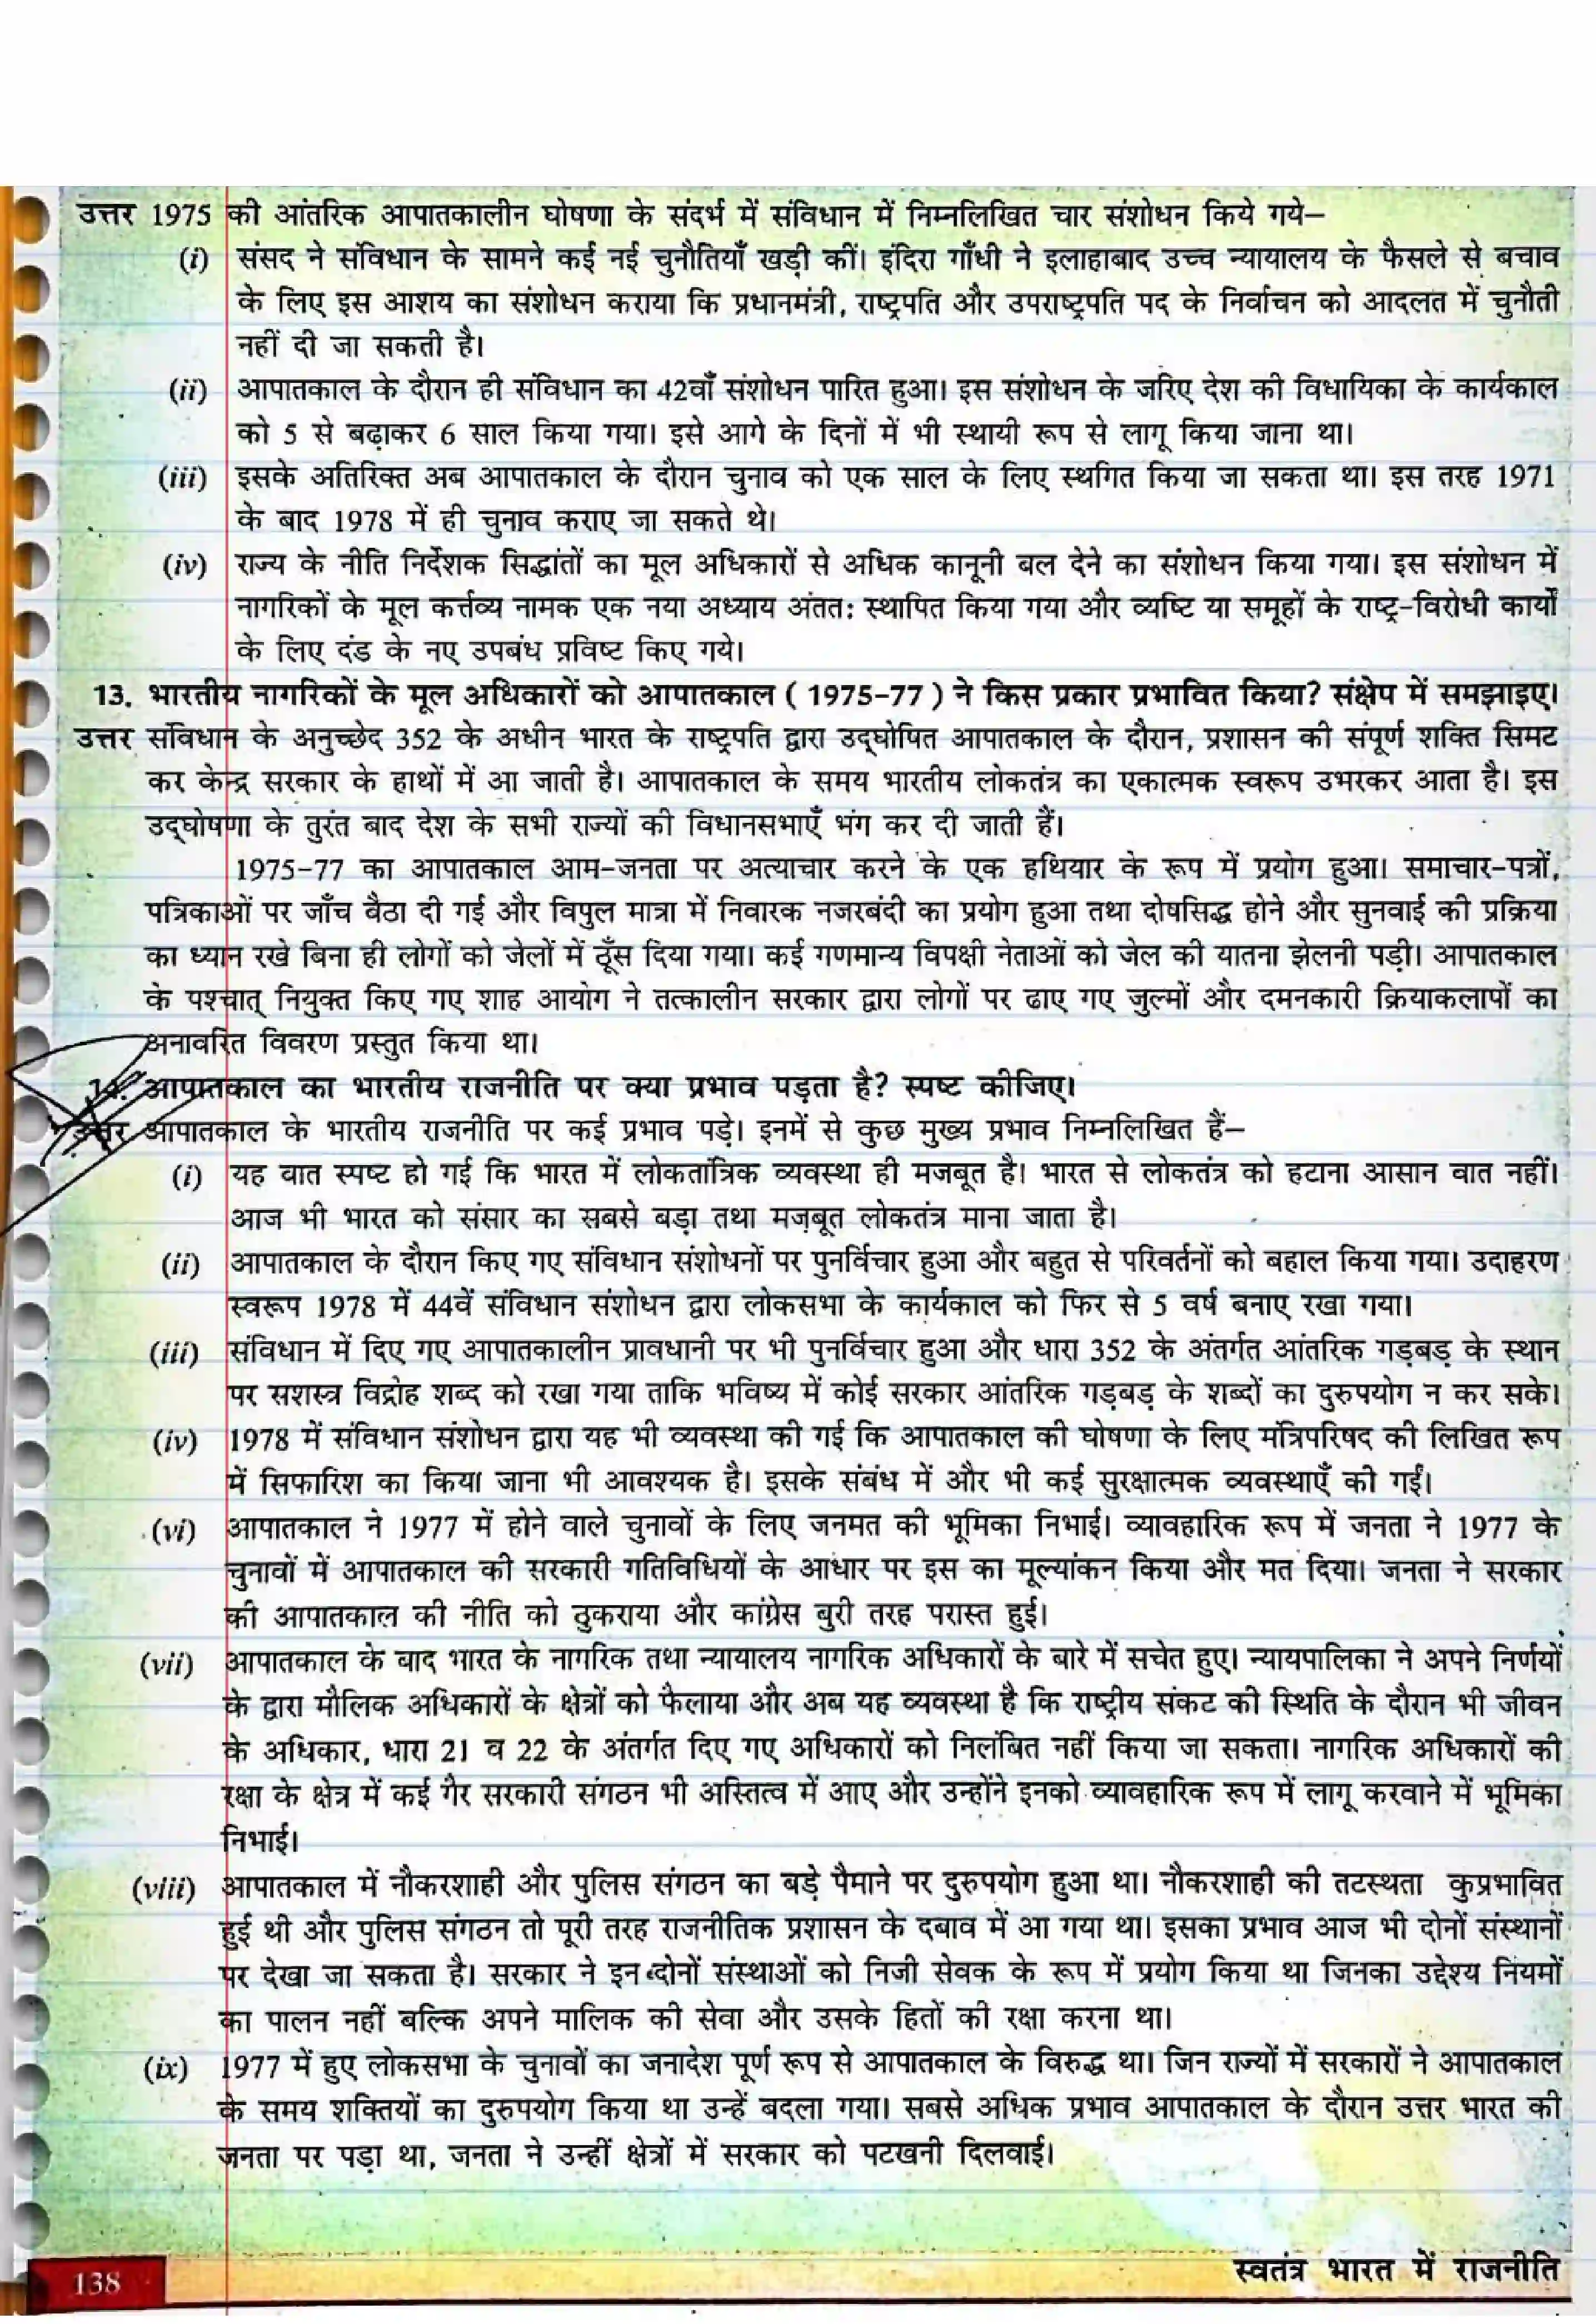 उत्तर 1975 की आंतरिक आपातकालीन घोषणा के संदर्भ में संविधान में निम्नलिखित चार संशोधन किये गये–
(i) संसद ने संविधान के सामने कई नई चुनौतियाँ खड़ी कीं। इंदिरा गाँधी ने इलाहाबाद उच्च न्यायालय के फैसले से बचाव
के लिए इस आशय का संशोधन कराया कि प्रधानमंत्री, राष्ट्रपति और उपराष्ट्रपति पद के निर्वाचन को आदलत में चुनौती
नहीं दी जा सकती है।
(ii) आपातकाल के दौरान ही संविधान का 42वाँ संशोधन पारित हुआ। इस संशोधन के जरिए देश की विधायिका के कार्यकाल
को 5 से बढ़ाकर 6 साल किया गया। इसे आगे के दिनों में भी स्थायी रूप से लागू किया जाना था।
(iii) इसके अतिरिक्त अब आपातकाल के दौरान चुनाव को एक साल के लिए स्थगित किया जा सकता था। इस तरह 1971
के बाद 1978 में ही चुनाव कराए जा सकते थे।
(iv) राज्य के नीति निर्देशक सिद्धांतों का मूल अधिकारों से अधिक कानूनी बल देने का संशोधन किया गया। इस संशोधन में
नागरिकों के मूल कर्त्तव्य नामक एक नया अध्याय अंततः स्थापित किया गया और व्यष्टि या समूहों के राष्ट्र-विरोधी कार्यों
के लिए दंड के नए उपबंध प्रविष्ट किए गये।
13. भारतीय नागरिकों के मूल अधिकारों को आपातकाल ( 1975-77 ) ने किस प्रकार प्रभावित किया? संक्षेप में समझाइए।
उत्तर संविधान के अनुच्छेद 352 के अधीन भारत के राष्ट्रपति द्वारा उद्घोषित आपातकाल के दौरान, प्रशासन की संपूर्ण शक्ति सिमट
कर केन्द्र सरकार के हाथों में आ जाती है। आपातकाल के समय भारतीय लोकतंत्र का एकात्मक स्वरूप उभरकर आता है। इस
उद्घोषणा के तुरंत बाद देश के सभी राज्यों की विधानसभाएँ भंग कर दी जाती हैं।
1975-77 का आपातकाल आम-जनता पर अत्याचार करने के एक हथियार के रूप में प्रयोग हुआ। समाचार-पत्रों,
पत्रिकाओं पर जाँच बैठा दी गई और विपुल मात्रा में निवारक नजरबंदी का प्रयोग हुआ तथा दोषसिद्ध होने और सुनवाई की प्रक्रिया
का ध्यान रखे बिना ही लोगों को जेलों में ठूँस दिया गया। कई गणमान्य विपक्षी नेताओं को जेल की यातना झेलनी पड़ी। आपातकाल
के पश्चात् नियुक्त किए गए शाह आयोग ने तत्कालीन सरकार द्वारा लोगों पर ढाए गए जुल्मों और दमनकारी क्रियाकलापों का
अनावरित विवरण प्रस्तुत किया था।
आपातकाल का भारतीय राजनीति पर क्या प्रभाव पड़ता है? स्पष्ट कीजिए।
उत्तर आपातकाल के भारतीय राजनीति पर कई प्रभाव पड़े। इनमें से कुछ मुख्य प्रभाव निम्नलिखित हैं–
(i) यह बात स्पष्ट हो गई कि भारत में लोकतांत्रिक व्यवस्था ही मजबूत है। भारत से लोकतंत्र को हटाना आसान वात नहीं।
आज भी भारत को संसार का सबसे बड़ा तथा मज़बूत लोकतंत्र माना जाता है।
(ii) आपातकाल के दौरान किए गए संविधान संशोधनों पर पुनर्विचार हुआ और बहुत से परिवर्तनों को बहाल किया गया। उदाहरण
स्वरूप 1978 में 44वें संविधान संशोधन द्वारा लोकसभा के कार्यकाल को फिर से 5 वर्ष बनाए रखा गया।
(iii) संविधान में दिए गए आपातकालीन प्रावधानी पर भी पुनर्विचार हुआ और धारा 352 के अंतर्गत आंतरिक गड़बड़ के स्थान
पर सशस्त्र विद्रोह शब्द को रखा गया ताकि भविष्य में कोई सरकार आंतरिक गड़बड़ के शब्दों का दुरुपयोग न कर सके।
(iv) 1978 में संविधान संशोधन द्वारा यह भी व्यवस्था की गई कि आपातकाल की घोषणा के लिए मंत्रिपरिषद की लिखित रूप
में सिफारिश का किया जाना भी आवश्यक है। इसके संबंध में और भी कई सुरक्षात्मक व्यवस्थाएँ की गईं।
(vi) आपातकाल ने 1977 में होने वाले चुनावों के लिए जनमत की भूमिका निभाई। व्यावहारिक रूप में जनता ने 1977 के
चुनावों में आपातकाल की सरकारी गतिविधियों के आधार पर इस का मूल्यांकन किया और मत दिया। जनता ने सरकार
की आपातकाल की नीति को ठुकराया और कांग्रेस बुरी तरह परास्त हुई।
(vii) आपातकाल के बाद भारत के नागरिक तथा न्यायालय नागरिक अधिकारों के बारे में सचेत हुए। न्यायपालिका ने अपने निर्णयों
के द्वारा मौलिक अधिकारों के क्षेत्रों को फैलाया और अब यह व्यवस्था है कि राष्ट्रीय संकट की स्थिति के दौरान भी जीवन
के अधिकार, धारा 21 व 22 के अंतर्गत दिए गए अधिकारों को निलंबित नहीं किया जा सकता। नागरिक अधिकारों की
रक्षा के क्षेत्र में कई गैर सरकारी संगठन भी अस्तित्व में आए और उन्होंने इनको व्यावहारिक रूप में लागू करवाने में भूमिका
निभाई।
(viii) आपातकाल में नौकरशाही और पुलिस संगठन का बड़े पैमाने पर दुरुपयोग हुआ था। नौकरशाही की तटस्थता कुप्रभावित
हुई थी और पुलिस संगठन तो पूरी तरह राजनीतिक प्रशासन के दबाव में आ गया था। इसका प्रभाव आज भी दोनों संस्थानों
पर देखा जा सकता है। सरकार ने इन दोनों संस्थाओं को निजी सेवक के रूप में प्रयोग किया था जिनका उद्देश्य नियमों
का पालन नहीं बल्कि अपने मालिक की सेवा और उसके हितों की रक्षा करना था।
(ix) 1977 में हुए लोकसभा के चुनावों का जनादेश पूर्ण रूप से आपातकाल के विरुद्ध था। जिन राज्यों में सरकारों ने आपातकाल
के समय शक्तियों का दुरुपयोग किया था उन्हें बदला गया। सबसे अधिक प्रभाव आपातकाल के दौरान उत्तर भारत की
जनता पर पड़ा था, जनता ने उन्हीं क्षेत्रों में सरकार को पटखनी दिलवाई।
138 स्वतंत्र भारत में राजनीति